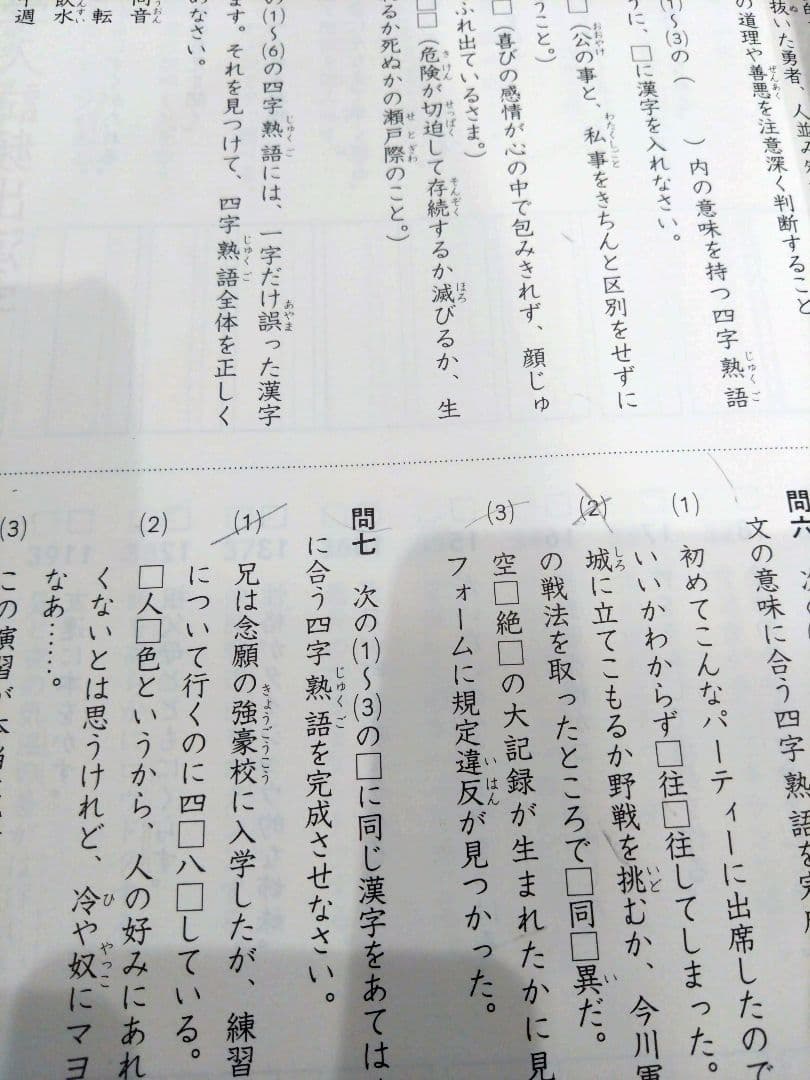 抜いた勇者、人並み
の道理や善悪を注意深く判断すること
(1)〜(3)の（　　）内の意味を持つ四字熟語
うに、□に漢字を入れなさい。
□（公の事と、私事をきちんと区別をせずに
うこと。）
□（喜びの感情が心の中で包みきれず、顔じゅ
ふれ出ているさま。）
□□（危険が切迫して存続するか滅びるか、生
るか死ぬかの瀬戸際のこと。）
の(1)〜(6)の四字熟語には、一字だけ誤った漢字
ます。それを見つけて、四字熟語全体を正しく
めなさい。
音
転
飲水
週
問六
文の意味に合う四字熟語を完
(1) 初めてこんなパーティーに出席したので
いいかわからず□往□往してしまった。
(2) 城に立てこもるか野戦を挑むか、今川軍
の戦法を取ったところで□同□異だ。
(3) 空□絶□の大記録が生まれたかに見
フォームに規定違反が見つかった。
問七 次の(1)〜(3)の□に同じ漢字をあては
に合う四字熟語を完成させなさい。
(1) 兄は念願の強豪校に入学したが、練習
について行くのに四□八□している。
(2) □人□色というから、人の好みにあれ
くないとは思うけれど、冷や奴にマヨ
なあ……。
(3) この演習が本当に